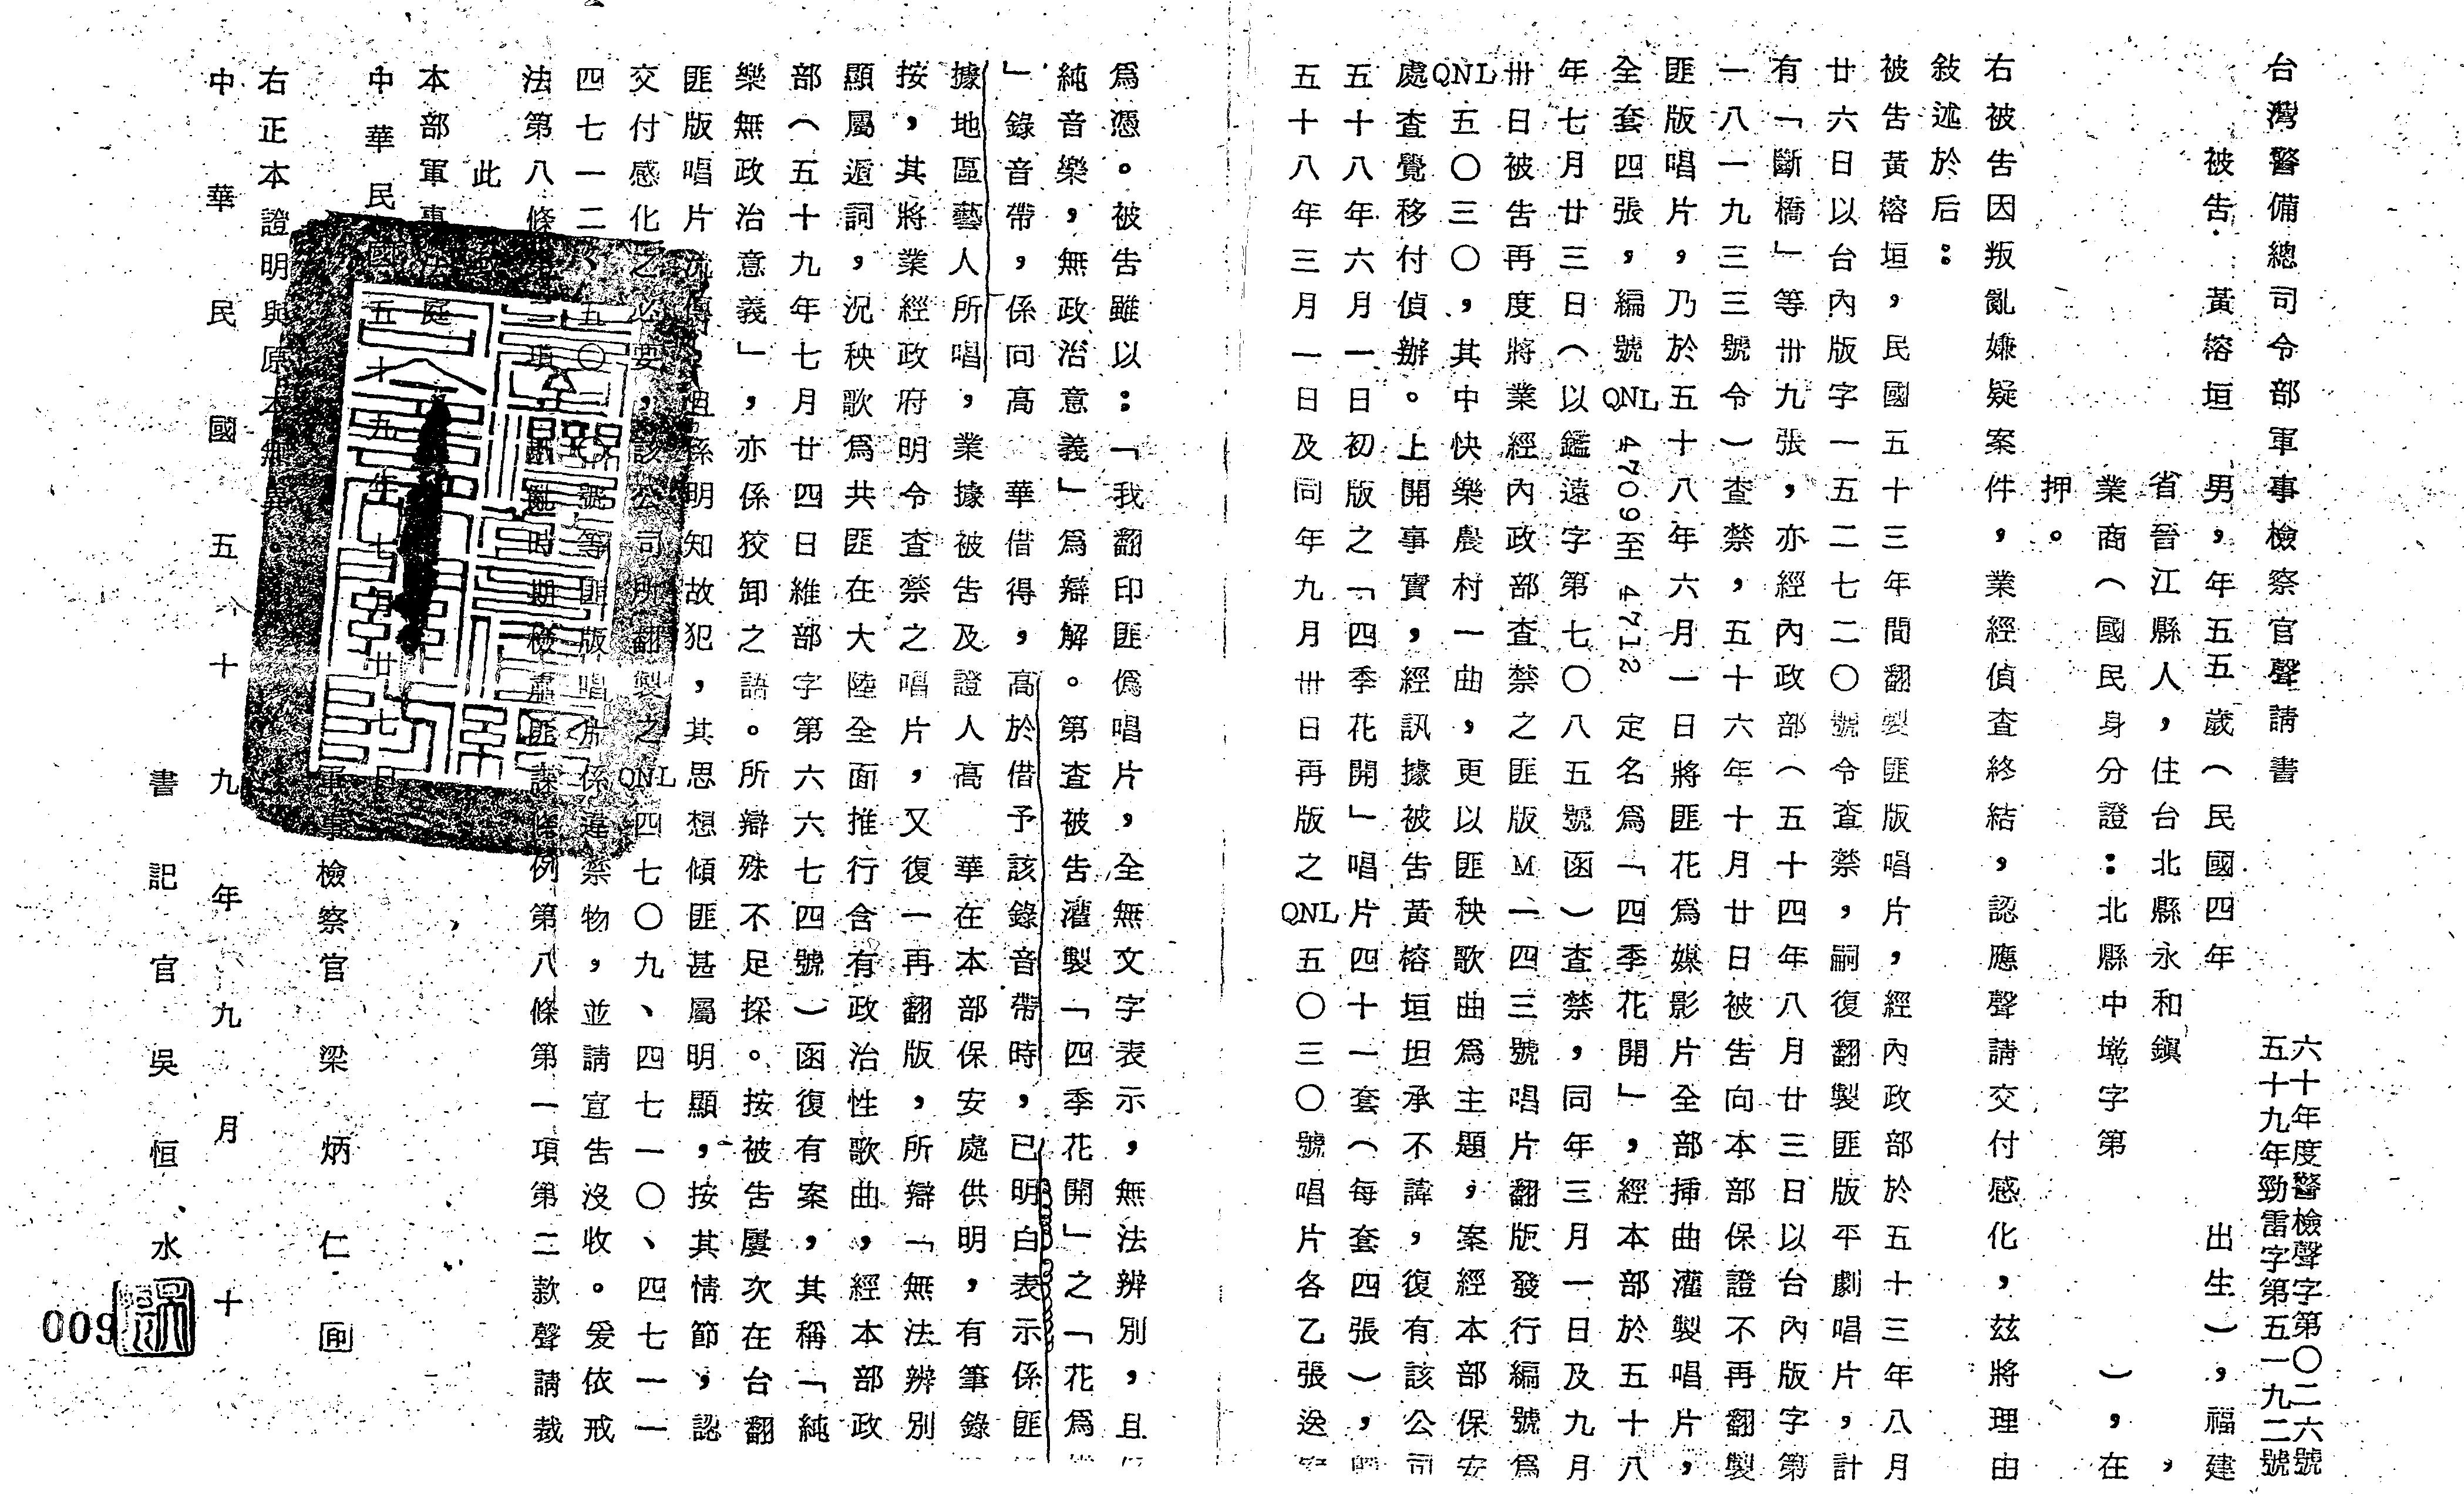 台灣警備總司令部軍事檢察官聲請書
六十年度警檢聲字第〇二六號
五十九年勁雷字第五一九二號
被告 黃榕垣 男,年五五歲(民國四年 出生),福建
省晉江縣人,住台北縣永和鎮 ,
業商(國民身分證:北縣中墩字第 ),在
押。
右被告因叛亂嫌疑案件,業經偵查終結,認應聲請交付感化,玆將理由
敍述於后:
被告黃榕垣,民國五十三年間翻製匪版唱片,經內政部於五十三年八月
廿六日以台內版字一五二七二〇號令查禁,嗣復翻製匪版平劇唱片,計
有「斷橋」等卅九張,亦經內政部(五十四年八月廿三日以台內版字第
一八一九三三號令)查禁,五十六年十月廿日被告向本部保證不再翻製
匪版唱片,乃於五十八年六月一日將匪花為媒影片全部揷曲灌製唱片,
全套四張,編號QNL 4709至4712 定名為「四季花開」,經本部於五十八
年七月廿三日(以鑑遠字第七〇八五號函)查禁,同年三月一日及九月
卅日被告再度將業經內政部查禁之匪版M一四三號唱片翻版發行編號為
QNL五〇三〇,其中快樂農村一曲,更以匪秧歌曲為主題,案經本部保安
處查覺移付偵辦。上開事實,經訊據被告黃榕垣坦承不諱,復有該公司
五十八年六月一日初版之「四季花開」唱片四十一套(每套四張),
五十八年三月一日及同年九月卅日再版之QNL五〇三〇號唱片各乙張送
為憑。被告雖以:「我翻印匪偽唱片,全無文字表示,無法辨別,且
純音樂,無政治意義」為辯解。第查被告灌製「四季花開」之「花為
」錄音帶,係向高 華借得,高於借予該錄音帶時,已明白表示係匪
據地區藝人所唱,業據被告及證人高 華在本部保安處供明,有筆錄
按,其將業經政府明令查禁之唱片,又復一再翻版,所辯「無法辨別
顯屬遁詞,況秧歌為共匪在大陸全面推行含有政治性歌曲,經本部政
部(五十九年七月廿四日維部字第六六七四號)函復有案,其稱「純
樂無政治意義」,亦係狡卸之語。所辯殊不足採。按被告屢次在台翻
匪版唱片流傳,但係明知故犯,其思想傾匪甚屬明顯,按其情節,認
交付感化之必要,該公司所翻製之QNL四七〇九、四七一〇、四七一一
四七一二、五〇三〇號等匪版唱片係違禁物,並請宣告沒收。爰依戒
法第八條第二項,戡亂時期檢肅匪諜條例第八條第一項第二款聲請裁
此
本部軍事法庭
中華民國五十九年七月廿七日
軍事檢察官 梁炳仁 印
右正本證明與原本無異。
中華民國五十九年九月十
書記官 吳恒水
009